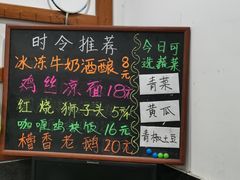 时令推荐
冰冻牛奶酒酿 8元
鸡丝凉面 18元
红烧狮子头 15元
咖喱鸡块饭 16元
糟香老鹅 20元
今日可选蔬菜
青菜
黄瓜
青椒土豆